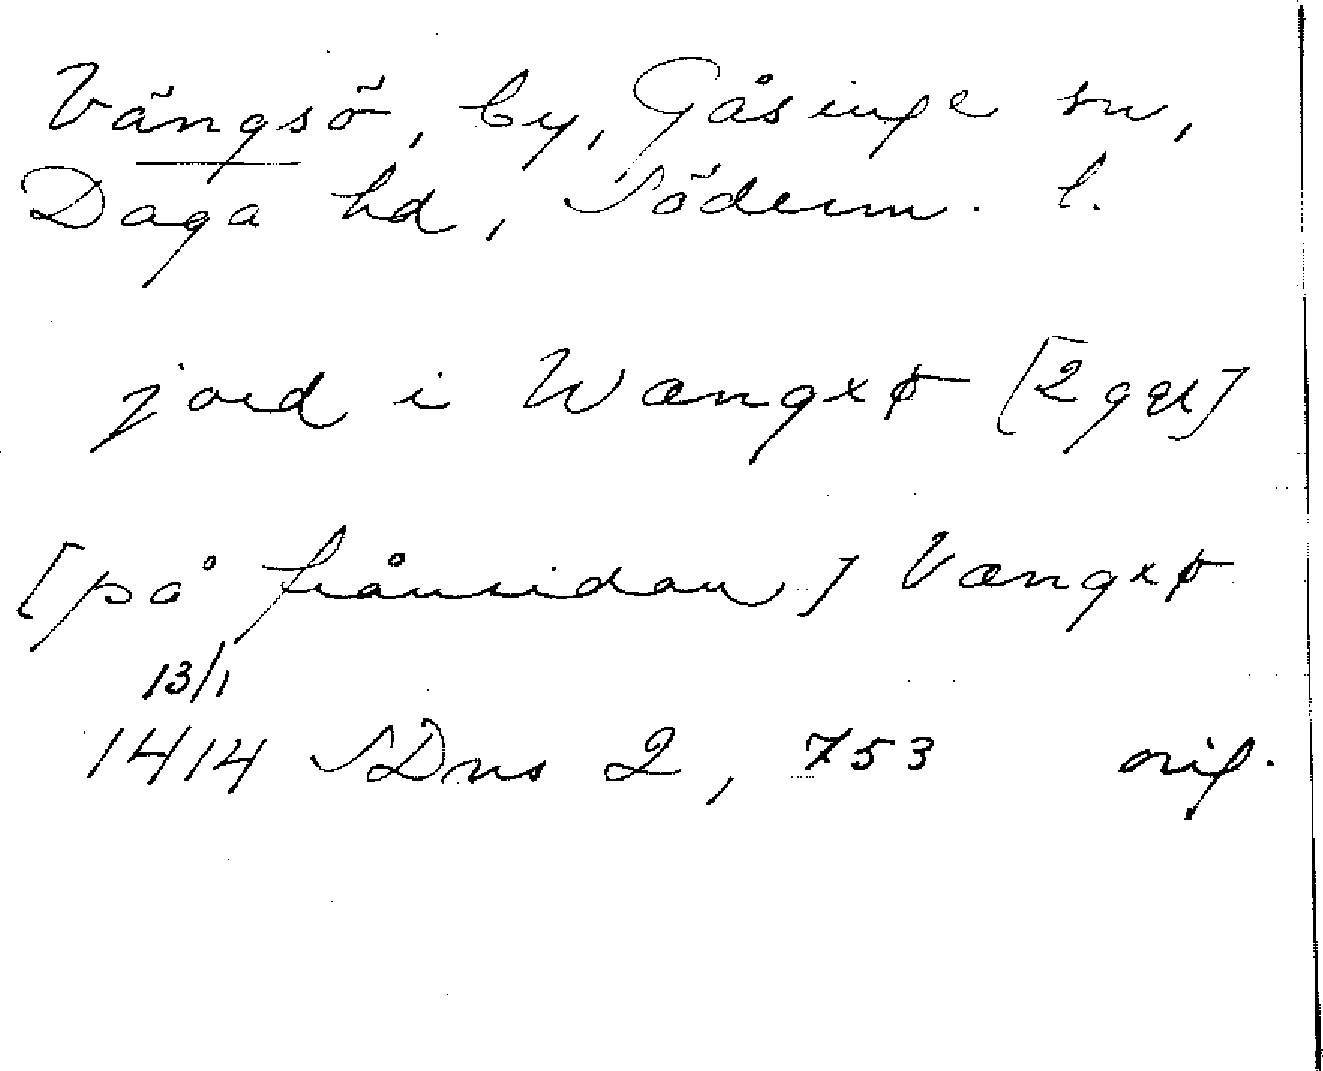 Vängsö, by, Gåsinge sn,
Daga hd, Söderm. l.
jord i Wængxø [2 ggr]
[på frånsidan] Vængxø
13/1
1414 SDns 2, 753 orig.